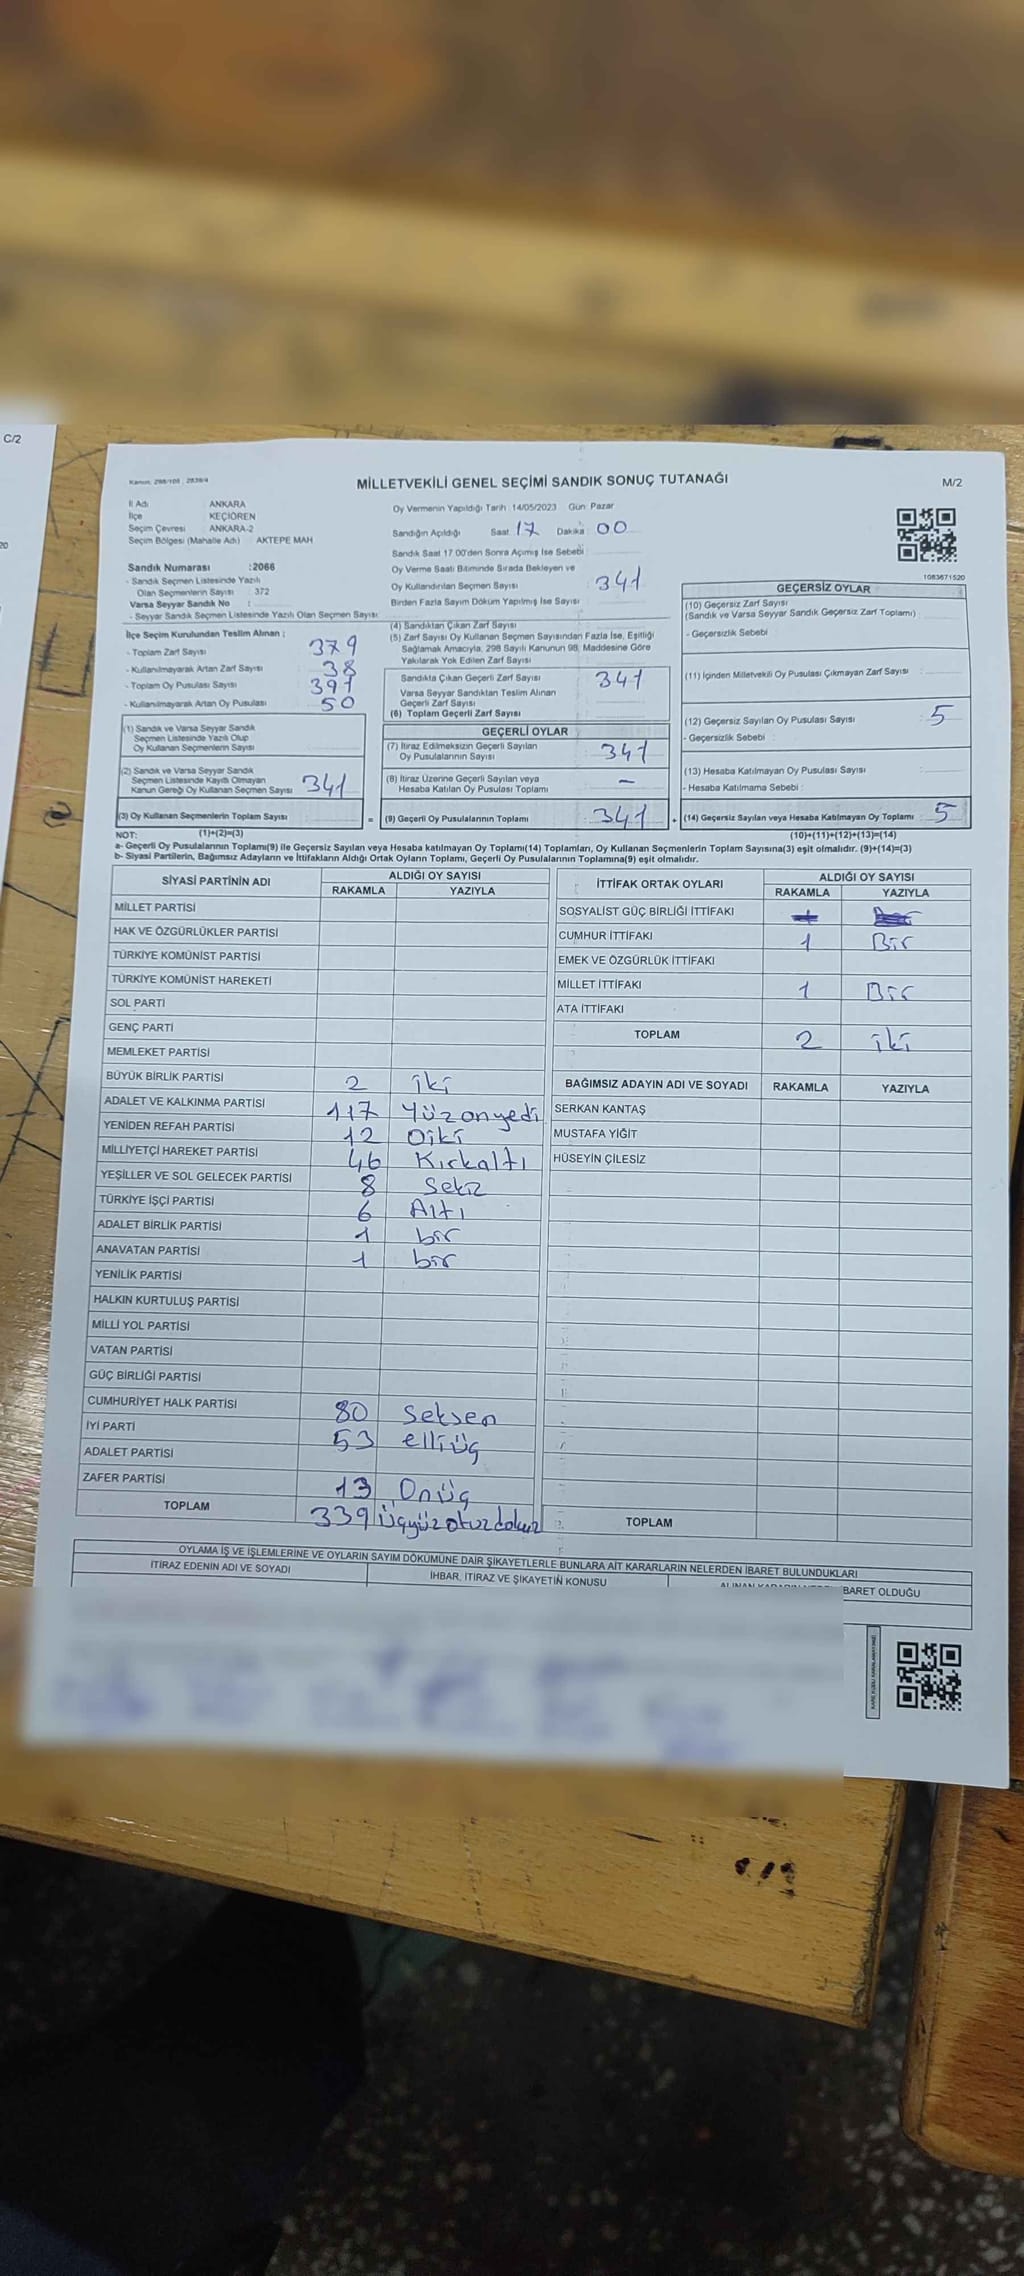 C/2
20
MİLLETVEKİLİ GENEL SEÇİMİ SANDIK SONUÇ TUTANAĞI
M/2
İl Adı ANKARA
İlçe KEÇİÖREN
Seçim Çevresi ANKARA-2
Seçim Bölgesi (Mahalle Adı) AKTEPE MAH
Oy Vermenin Yapıldığı Tarih 14/05/2023 Gün Pazar
Sandığın Açıldığı Saat 17 Dakika 00
Sandık Saat 17 00'den Sonra Açımış İse Sebebi
Oy Verme Saati Bitiminde Sırada Bekleyen ve
Oy Kullandırılan Seçmen Sayısı 341
Birden Fazla Sayım Döküm Yapılmış İse Sayısı
1083671520
Sandık Numarası :2066
- Sandık Seçmen Listesinde Yazılı
Olan Seçmenlerin Sayısı 372
Varsa Seyyar Sandık No :
- Seyyar Sandık Seçmen Listesinde Yazılı Olan Seçmen Sayısı
İlçe Seçim Kurulundan Teslim Alınan ;
- Toplam Zarf Sayısı 379
- Kullanılmayarak Artan Zarf Sayısı 38
- Toplam Oy Pusulası Sayısı 391
- Kullanılmayarak Artan Oy Pusulası 50
(1) Sandık ve Varsa Seyyar Sandık
Seçmen Listesinde Yazılı Olup
Oy Kullanan Seçmenlerin Sayısı
(2) Sandık ve Varsa Seyyar Sandık
Seçmen Listesinde Kayıtlı Olmayan
Kanun Gereği Oy Kullanan Seçmen Sayısı 341
(3) Oy Kullanan Seçmenlerin Toplam Sayısı =
(1)+(2)=(3)
(4) Sandıktan Çıkan Zarf Sayısı
(5) Zarf Sayısı Oy Kullanan Seçmen Sayısından Fazla İse, Eşitliği
Sağlamak Amacıyla, 298 Sayılı Kanunun 98. Maddesine Göre
Yakılarak Yok Edilen Zarf Sayısı
Sandıkta Çıkan Geçerli Zarf Sayısı 341
Varsa Seyyar Sandıktan Teslim Alınan
Geçerli Zarf Sayısı
(6) Toplam Geçerli Zarf Sayısı
GEÇERLİ OYLAR
(7) İtiraz Edilmeksizin Geçerli Sayılan
Oy Pusulalarının Sayısı 341
(8) İtiraz Üzerine Geçerli Sayılan veya
Hesaba Katılan Oy Pusulası Toplamı –
(9) Geçerli Oy Pusulalarının Toplamı 341 +
GEÇERSİZ OYLAR
(10) Geçersiz Zarf Sayısı
(Sandık ve Varsa Seyyar Sandık Geçersiz Zarf Toplamı)
- Geçersizlik Sebebi
(11) İçinden Milletvekili Oy Pusulası Çıkmayan Zarf Sayısı
(12) Geçersiz Sayılan Oy Pusulası Sayısı 5
- Geçersizlik Sebebi :
(13) Hesaba Katılmayan Oy Pusulası Sayısı
- Hesaba Katılmama Sebebi :
(14) Geçersiz Sayılan veya Hesaba Katılmayan Oy Toplamı 5
(10)+(11)+(12)+(13)=(14)
NOT:
a- Geçerli Oy Pusulalarının Toplamı(9) ile Geçersiz Sayılan veya Hesaba katılmayan Oy Toplamı(14) Toplamları, Oy Kullanan Seçmenlerin Toplam Sayısına(3) eşit olmalıdır. (9)+(14)=(3)
b- Siyasi Partilerin, Bağımsız Adayların ve İttifakların Aldığı Ortak Oyların Toplamı, Geçerli Oy Pusulalarının Toplamına(9) eşit olmalıdır.
SİYASİ PARTİNİN ADI
ALDIĞI OY SAYISI
RAKAMLA YAZIYLA
MİLLET PARTİSİ
HAK VE ÖZGÜRLÜKLER PARTİSİ
TÜRKİYE KOMÜNİST PARTİSİ
TÜRKİYE KOMÜNİST HAREKETİ
SOL PARTİ
GENÇ PARTİ
MEMLEKET PARTİSİ
BÜYÜK BİRLİK PARTİSİ 2 iki
ADALET VE KALKINMA PARTİSİ 117 Yüzonyedi
YENİDEN REFAH PARTİSİ 12 Oiki
MİLLİYETÇİ HAREKET PARTİSİ 46 Kırkaltı
YEŞİLLER VE SOL GELECEK PARTİSİ 8 Sekiz
TÜRKİYE İŞÇİ PARTİSİ 6 Altı
ADALET BİRLİK PARTİSİ 1 bir
ANAVATAN PARTİSİ 1 bir
YENİLİK PARTİSİ
HALKIN KURTULUŞ PARTİSİ
MİLLİ YOL PARTİSİ
VATAN PARTİSİ
GÜÇ BİRLİĞİ PARTİSİ
CUMHURİYET HALK PARTİSİ 80 Seksen
İYİ PARTİ 53 elliüç
ADALET PARTİSİ
ZAFER PARTİSİ 13 Onüç
TOPLAM 339 üçyüzotuzdokuz
İTTİFAK ORTAK OYLARI
ALDIĞI OY SAYISI
RAKAMLA YAZIYLA
SOSYALİST GÜÇ BİRLİĞİ İTTİFAKI
CUMHUR İTTİFAKI 1 Bir
EMEK VE ÖZGÜRLÜK İTTİFAKI
MİLLET İTTİFAKI 1 Bir
ATA İTTİFAKI
TOPLAM 2 iki
BAĞIMSIZ ADAYIN ADI VE SOYADI RAKAMLA YAZIYLA
SERKAN KANTAŞ
MUSTAFA YİĞİT
HÜSEYİN ÇİLESİZ
TOPLAM
OYLAMA İŞ VE İŞLEMLERİNE VE OYLARIN SAYIM DÖKÜMÜNE DAİR ŞİKAYETLERLE BUNLARA AİT KARARLARIN NELERDEN İBARET BULUNDUKLARI
İTİRAZ EDENİN ADI VE SOYADI
İHBAR, İTİRAZ VE ŞİKAYETİN KONUSU
BARET OLDUĞU